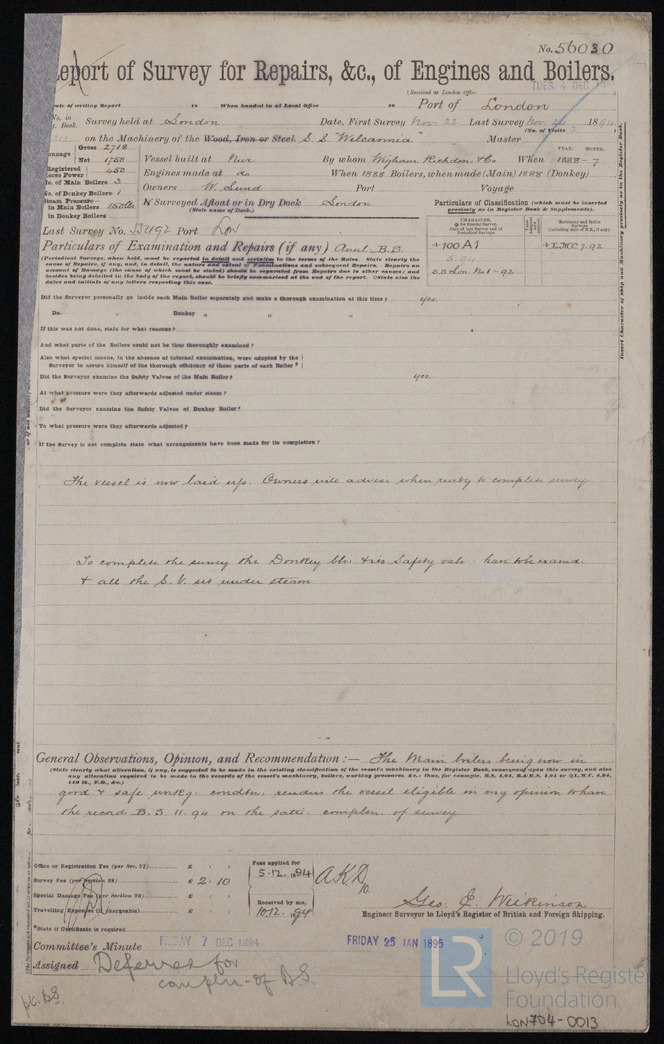 No. 56030
Report of Survey for Repairs, &c., of Engines and Boilers.
(Received at London Office TUES. 4 DEC 18
Date of writing Report 18 When handed in at Local Office 18 Port of London
No. in Book. Survey held at London Date, First Survey Nov. 22 Last Survey Nov 1894
(No. of Visits
on the Machinery of the Wood, Iron or Steel S.S "Wilcannia" Master
Tonnage Gross 2718
Net 1750
Vessel built at Nwc By whom Wigham Richdson & Co When 1888-7
YEAR. MONTH.
Registered Horse Power 450
Engines made at do When 1888 Boilers, when made (Main) 1888 (Donkey)
No. of Main Boilers 3
No. of Donkey Boilers 1
Owners W. Lund Port Voyage
Steam Pressure in Main Boilers 150 lbs
in Donkey Boilers
If Surveyed Afloat or in Dry Dock London
(State name of Dock.)
Particulars of Classification (which must be inserted precisely as in Register Book & Supplements).
Last Survey No. Port Lon
+100A1
5.94
S.S Lon No 1-92
+LMC 7.92
Particulars of Examination and Repairs (if any) Annl B.B.
(Periodical Surveys, when held, must be reported in detail and seriatim in the terms of the Rules. State clearly the
cause of Repairs, if any, and, in detail, the nature and extent of Examinations and subsequent Repairs. Repairs on
account of Damage (the cause of which must be stated) should be separated from Repairs due to other causes; and
besides being detailed in the body of the report, should be briefly summarized at the end of the report. State also the
dates and initials of any letters respecting this case.
Did the Surveyor personally go inside each Main Boiler separately and make a thorough examination at this time? yes.
Do. " Donkey " " "
If this was not done, state for what reasons?
And what parts of the Boilers could not be thus thoroughly examined?
Also what special means, in the absence of internal examination, were adopted by the
Surveyor to assure himself of the thorough efficiency of those parts of each Boiler?
Did the Surveyor examine the Safety Valves of the Main Boiler? yes.
At what pressure were they afterwards adjusted under steam?
Did the Surveyor examine the Safety Valves of Donkey Boiler?
To what pressure were they afterwards adjusted?
If the Survey is not complete state what arrangements have been made for its completion?
The vessel is now laid up. Owners will advise when ready to complete survey
To complete the survey the Donkey blr. & its Safety valv. have to be examd.
& all the S.V. set under steam
Insert Character of Ship and Machinery precisely as in the Register Book.
General Observations, Opinion, and Recommendation:— The Main boilers being now in
(State clearly what alteration, if any, is suggested to be made in the existing classification of the vessel's machinery in the Register Book, consequent upon this survey, and also
any alteration required to be made in the records of the vessel's machinery, boilers, working pressures, &c.; thus, for example, B.S. 4,94, B.&M.S. 4,94 or L.M.C. 4,94,
good & safe workg. condtn. renders the vessel eligible in my opinion to have
the record B.S. 11.94 on the satis. compltn. of survey
Office or Registration Fee (per Sec. 27) £
Survey Fee (per Section 28) £ 2 . 10
Special Damage Fee (per Section 28) £
Travelling Expenses (if chargeable) £
Fees applied for
5.12.94
Received by me,
10.12.94
A.K.D.
Geo. E. Wilkinson
Engineer Surveyor to Lloyd's Register of British and Foreign Shipping.
*State if Certificate is required
Committee's Minute FRIDAY 7 DEC 1894 FRIDAY 25 JAN 1895
Assigned Deferred for
compln. of B.S.
LR © 2019
Lloyd's Register
Foundation
LON704-0013